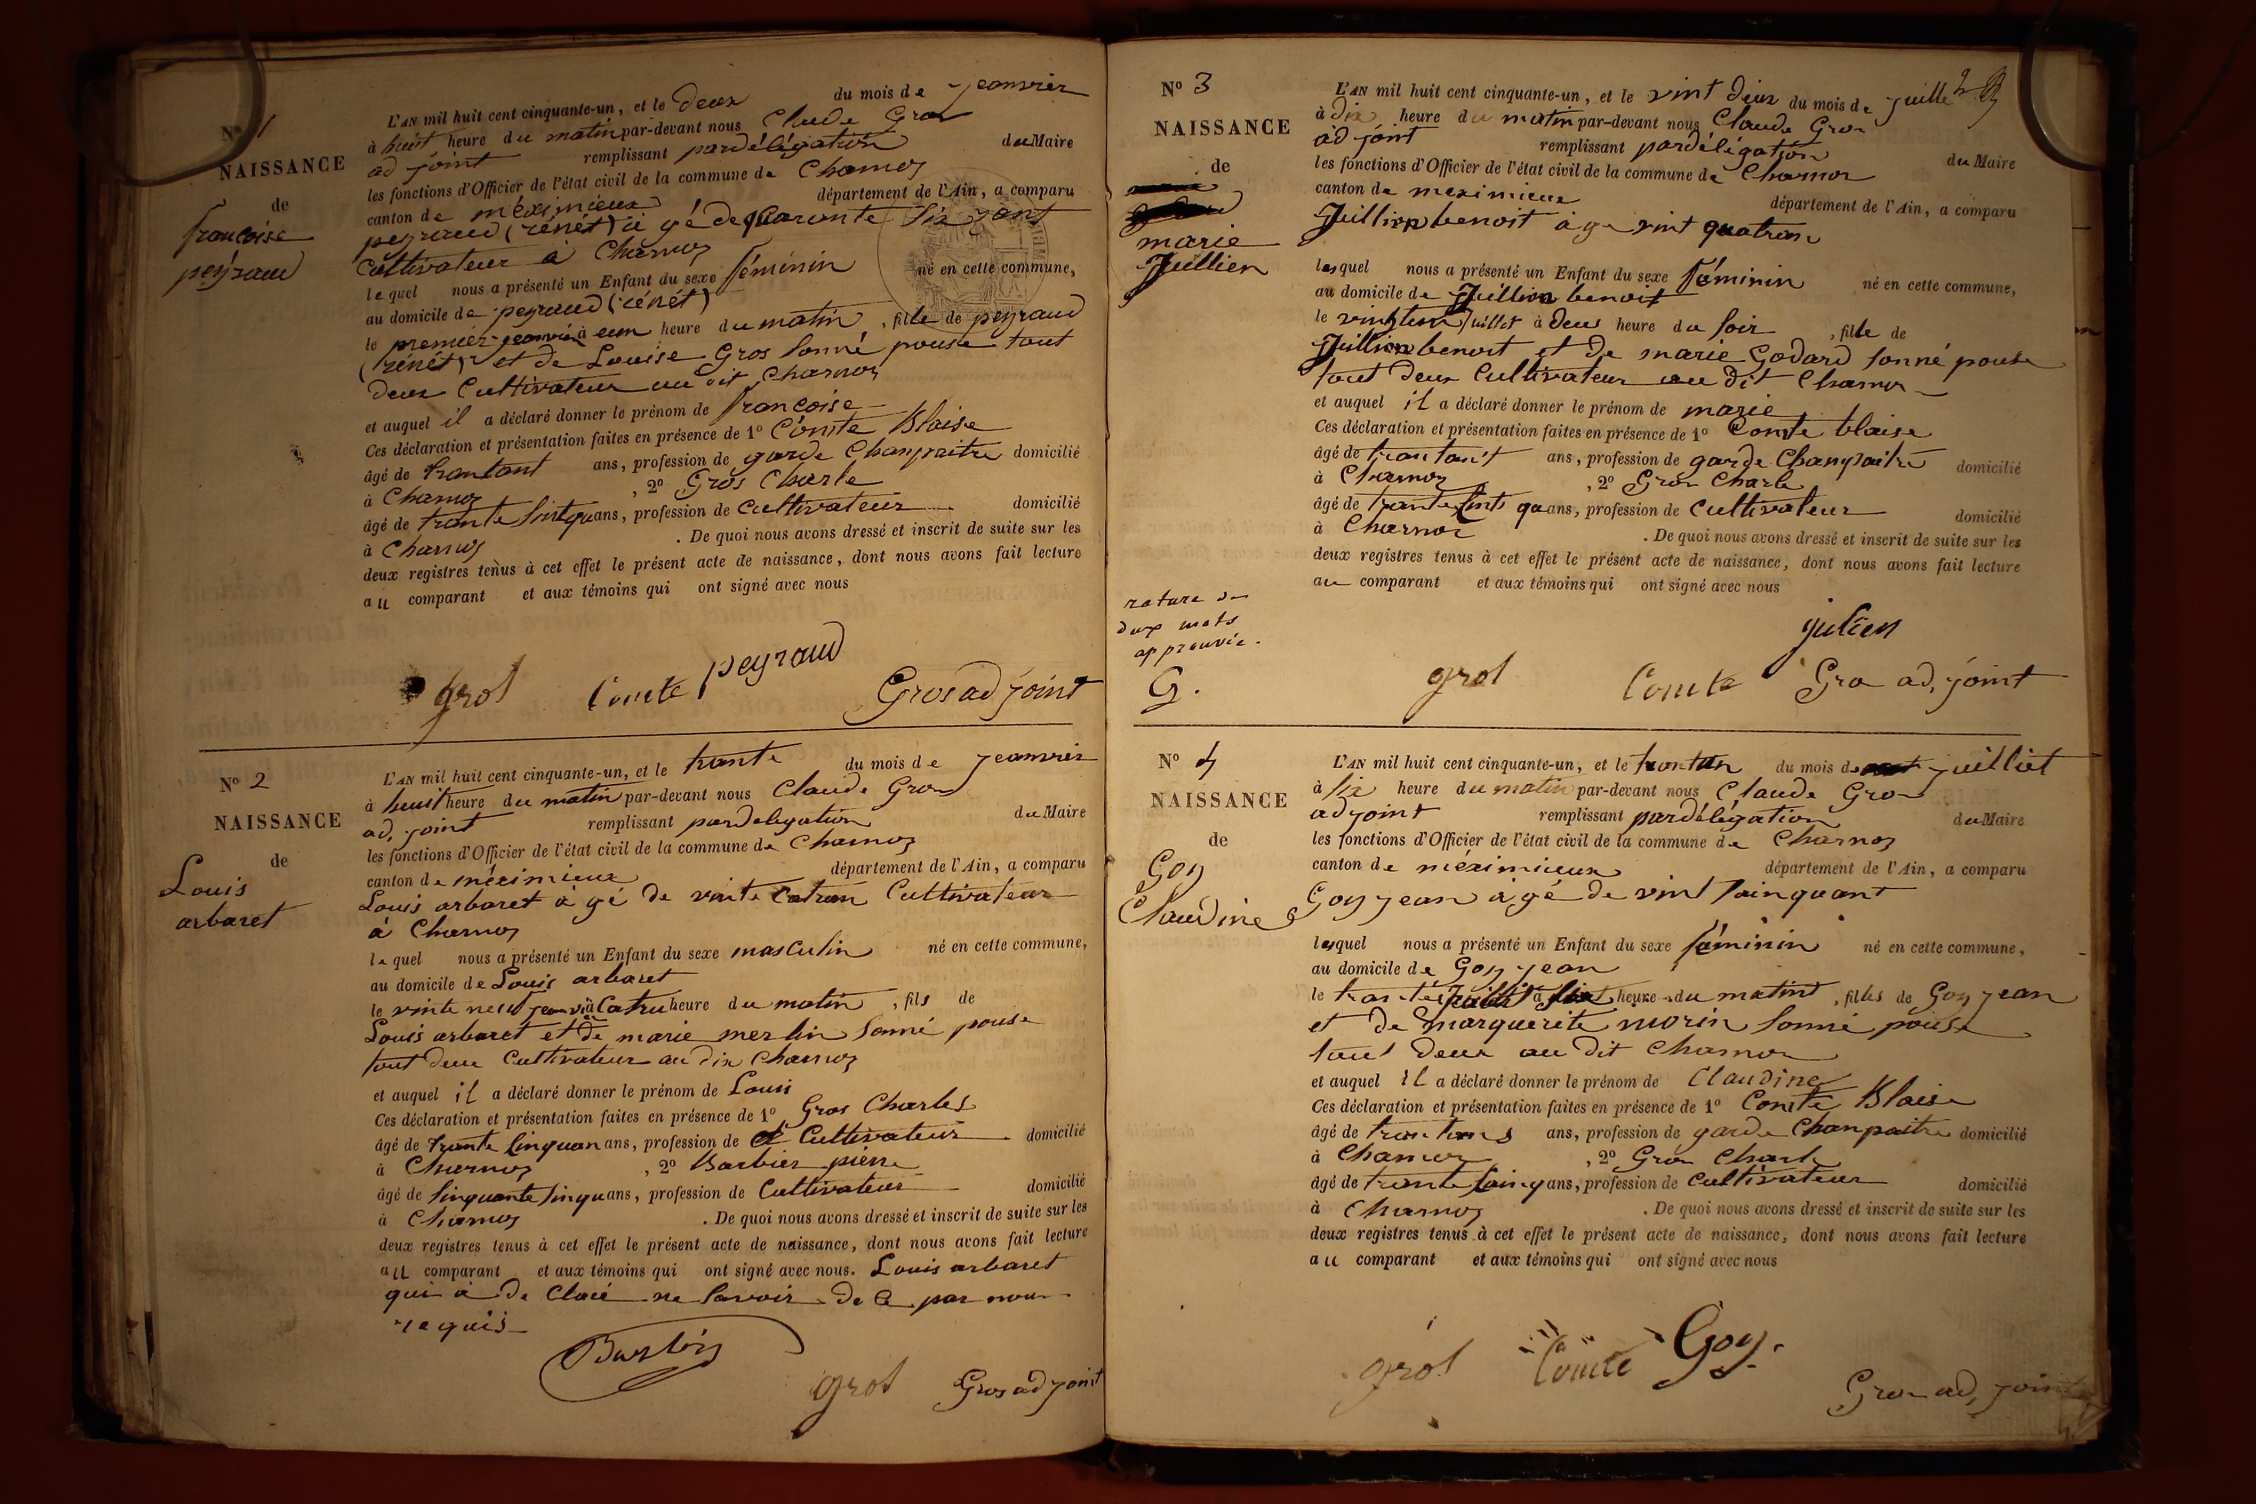 No 1
NAISSANCE
de
francoise
peyraud
L'AN mil huit cent cinquante-un, et le deux du mois de jeanvier
à huit heure du matin par-devant nous Claude Gros
ad joint remplissant pardélégation du Maire
les fonctions d'Officier de l'état civil de la commune de Charnoz
canton de méximieux département de l'Ain, a comparu
peyraud (rénét) à gé de quarante six
Cultivateur à Charnoz
le quel nous a présenté un Enfant du sexe féminin né en cette commune,
au domicile de peyraud (rénét)
le premier jeanvié à eun heure du matin, fille de peyraud
(rénét) et de Louise Gros sonné pouse tout
deux Cultivateur au dit Charnoz
et auquel il a déclaré donner le prénom de francoise
Ces déclaration et présentation faites en présence de 1° Comte Blaise
âgé de ans, profession de garde Chanpaitre domicilié
à Charnoz, 2° Gros Charle
âgé de trante ans, profession de Cultivateur domicilié
à Charnoz. De quoi nous avons dressé et inscrit de suite sur les
deux registres tenus à cet effet le présent acte de naissance, dont nous avons fait lecture
au comparant et aux témoins qui ont signé avec nous
peyraud
grol Comte Gros ad joint
No 2
NAISSANCE
de
Louis
arbaret
L'AN mil huit cent cinquante-un, et le trante du mois de jeanvier
à huit heure du matin par-devant nous Claude Gros
ad, joint remplissant pardelegation du Maire
les fonctions d'Officier de l'état civil de la commune de Charnoz
canton de méximieux département de l'Ain, a comparu
Louis arbaret à gé de vinte Catran Cultivateur
à Charnoz
le quel nous a présenté un Enfant du sexe masculin né en cette commune,
au domicile de Louis arbaret
le vinte neuf à Catru heure du matin, fils de
Louis arbaret et de marie merlin sonné pouse
tout deux Cultivateur au dix Charnoz
et auquel il a déclaré donner le prénom de Louis
Ces déclaration et présentation faites en présence de 1° Gros Charles
âgé de trante Cinquan ans, profession de Cultivateur domicilié
à Charnoz, 2° Barbier piérre
âgé de sinquante sinqu ans, profession de Cultivateur domicilié
à Charnoz. De quoi nous avons dressé et inscrit de suite sur les
deux registres tenus à cet effet le présent acte de naissance, dont nous avons fait lecture
au comparant et aux témoins qui ont signé avec nous. Louis arbaret
qui à de Claié ne savoir de ce par nous
requis
grol Gros ad joint
No 3
NAISSANCE
de
marie
Jullien
L'AN mil huit cent cinquante-un, et le vint deux du mois de juille
à dix heure du matin par-devant nous Claude Gros
ad joint remplissant pardélégation du Maire
les fonctions d'Officier de l'état civil de la commune de Charnoz
canton de meximieux département de l'Ain, a comparu
Jullien benoit à ge vint quatran
lesquel nous a présenté un Enfant du sexe féminin né en cette commune,
au domicile de Jullien benoit
le juillet à deux heure du soir, fille de
Jullien benoit et de marie Godard sonné pouse
tout deux Cultivateur au dit Charnoz
et auquel il a déclaré donner le prénom de marie
Ces déclaration et présentation faites en présence de 1° Comte blaise
âgé de ans, profession de garde domicilié
à Charnoz, 2° Gros Charle
âgé de trante ans, profession de Cultivateur domicilié
à Charnoz. De quoi nous avons dressé et inscrit de suite sur les
deux registres tenus à cet effet le présent acte de naissance, dont nous avons fait lecture
au comparant et aux témoins qui ont signé avec nous
rature de
deux mots
approuvée.
G.
julien
grol Comte Gros ad, joint
No 4
NAISSANCE
de
Goy
Claudine
L'AN mil huit cent cinquante-un, et le du mois de juilliet
à six heure du matin par-devant nous Claude Gros
adjoint remplissant pardélégation du Maire
les fonctions d'Officier de l'état civil de la commune de Charnoz
canton de méximieux département de l'Ain, a comparu
Goy jean à gé de vint sainquant
lesquel nous a présenté un Enfant du sexe féminin né en cette commune,
au domicile de Goy jean
le à heure du matin, filles de Goy jean
et de marguerite morin sonné pouse
tout deux au dit Charnoz
et auquel il a déclaré donner le prénom de Claudine
Ces déclaration et présentation faites en présence de 1° Comte Blaise
âgé de ans, profession de garde Chanpaitre domicilié
à Charnoz, 2° Gros Charle
âgé de trante sainq ans, profession de Cultivateur domicilié
à Charnoz. De quoi nous avons dressé et inscrit de suite sur les
deux registres tenus à cet effet le présent acte de naissance, dont nous avons fait lecture
au comparant et aux témoins qui ont signé avec nous
grol Comte Goy.
Gros ad, joint